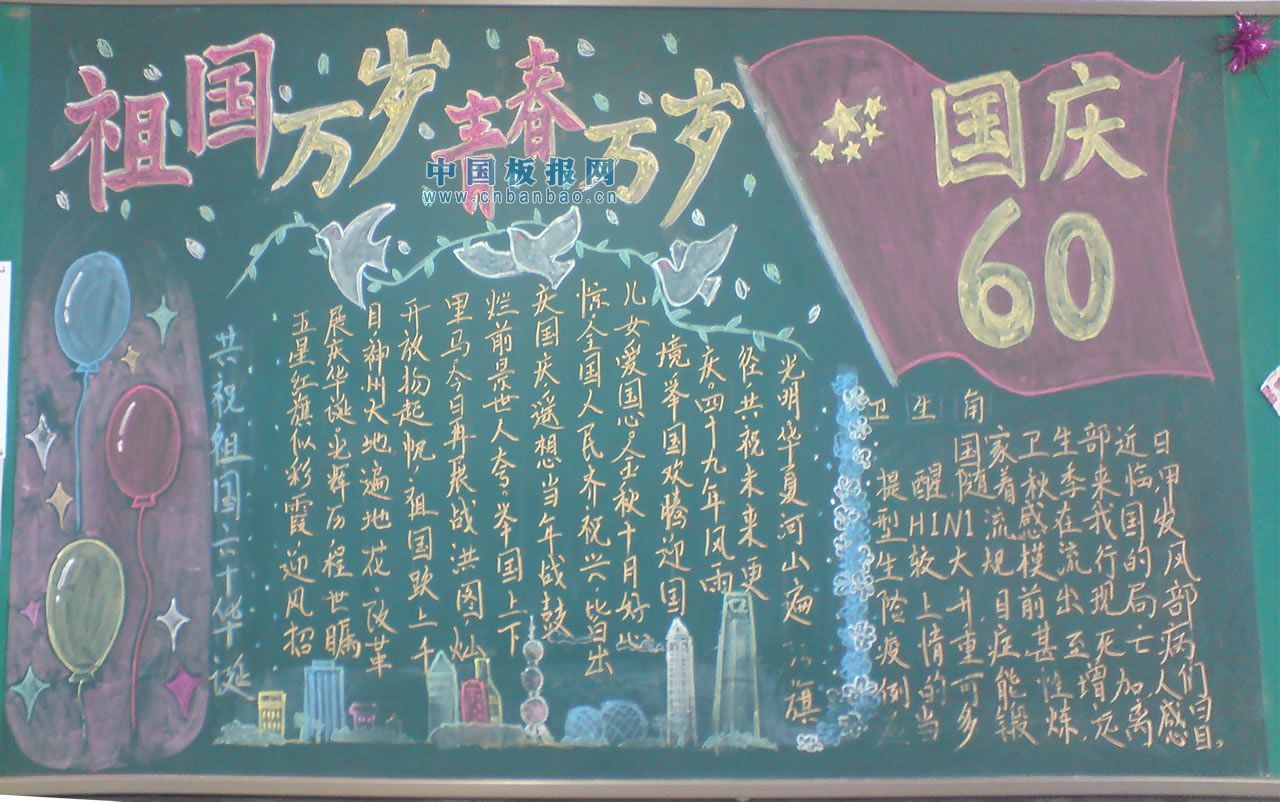 祖国万岁青春万岁
中国板报网
www.cnbanbao.cn
国庆
60
共祝祖国六十华诞
五星红旗似彩霞迎风招
展庆华诞光辉历程世瞩
目神州大地遍地花改革
开放扬起帆祖国跃上千
里马今日再展战洪图灿
烂前景世人夸举国上下
庆国庆遥想当年战鼓
惊全国人民齐祝兴皆出
儿女爱国心金秋十月好心
境举国欢腾迎国
庆四十九年风雨
径共祝未来更
光明华夏河山遍
旗
卫生角
国家卫生部近日
提醒随着秋季来临甲
型HINI流感在我国发
生较大规模流行的风
险上升目前出现局部
疫情重症甚至死亡病
例的可能性增加人们
应当多锻炼,远离感冒